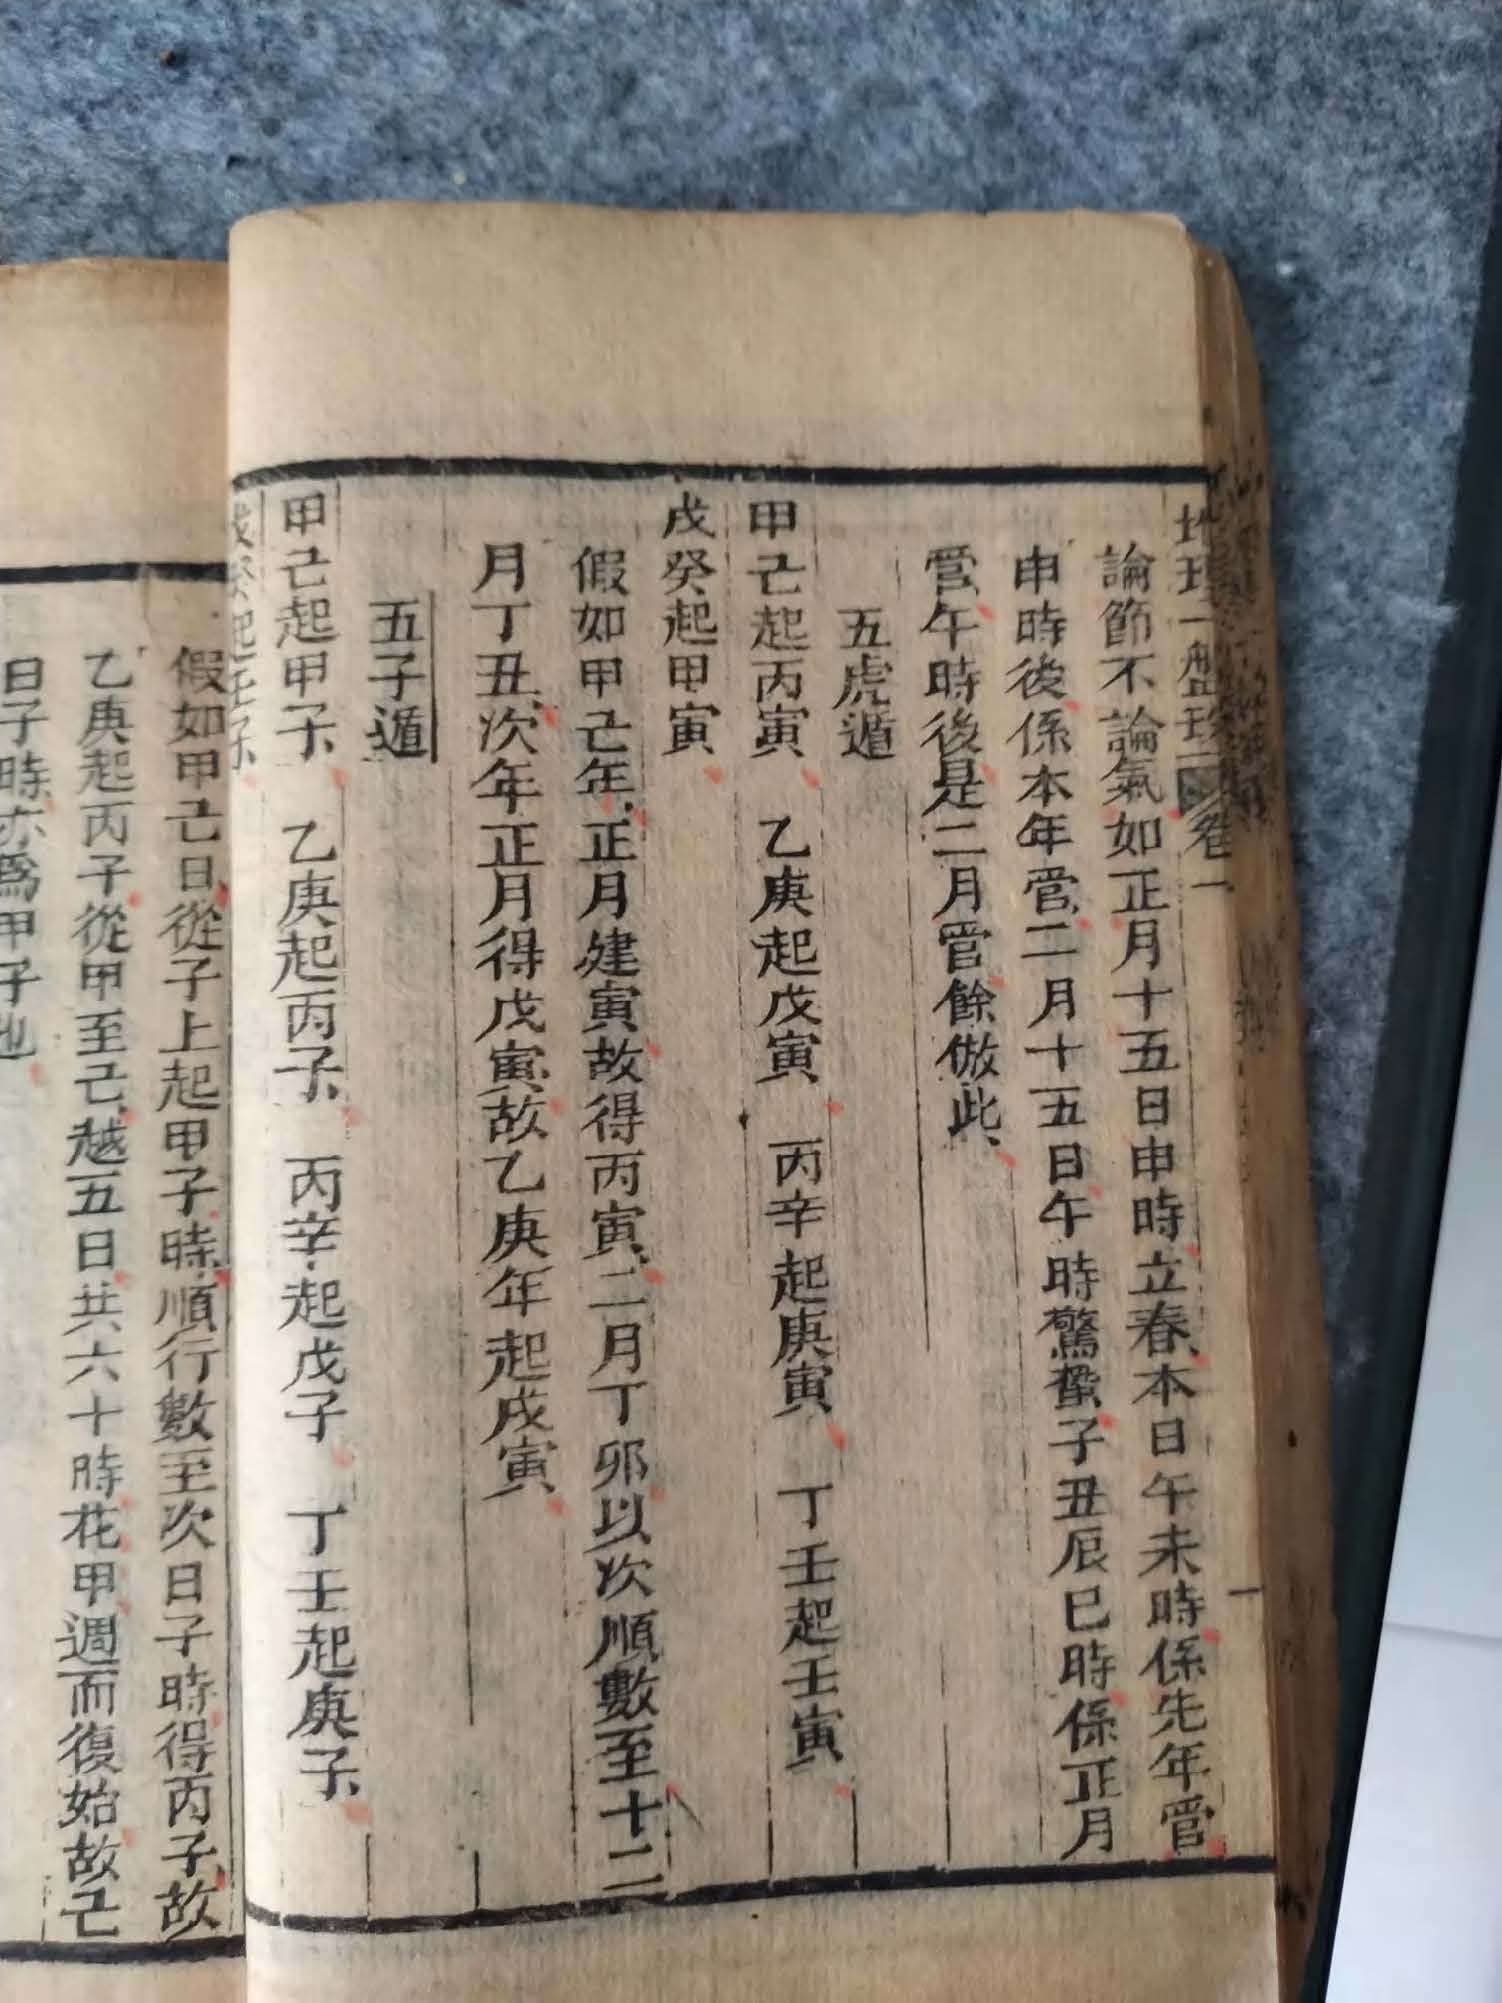 地理一盤珠 卷一 一
論節不論氣如正月十五日申時立春本日午未時係先年管
申時後係本年管二月十五日午時驚蟄子丑辰巳時係正月
管午時後是二月管餘倣此
五虎遁
甲己起丙寅 乙庚起戊寅 丙辛起庚寅 丁壬起壬寅
戊癸起甲寅
假如甲己年正月建寅故得丙寅二月丁卯以次順數至十二
月丁丑次年正月得戊寅故乙庚年起戊寅
五子遁
甲己起甲子 乙庚起丙子 丙辛起戊子 丁壬起庚子
戊癸起壬子
假如甲己日從子上起甲子時順行數至次日子時得丙子故
乙庚起丙子從甲至己越五日共六十時花甲週而復始故己
日子時亦為甲子也